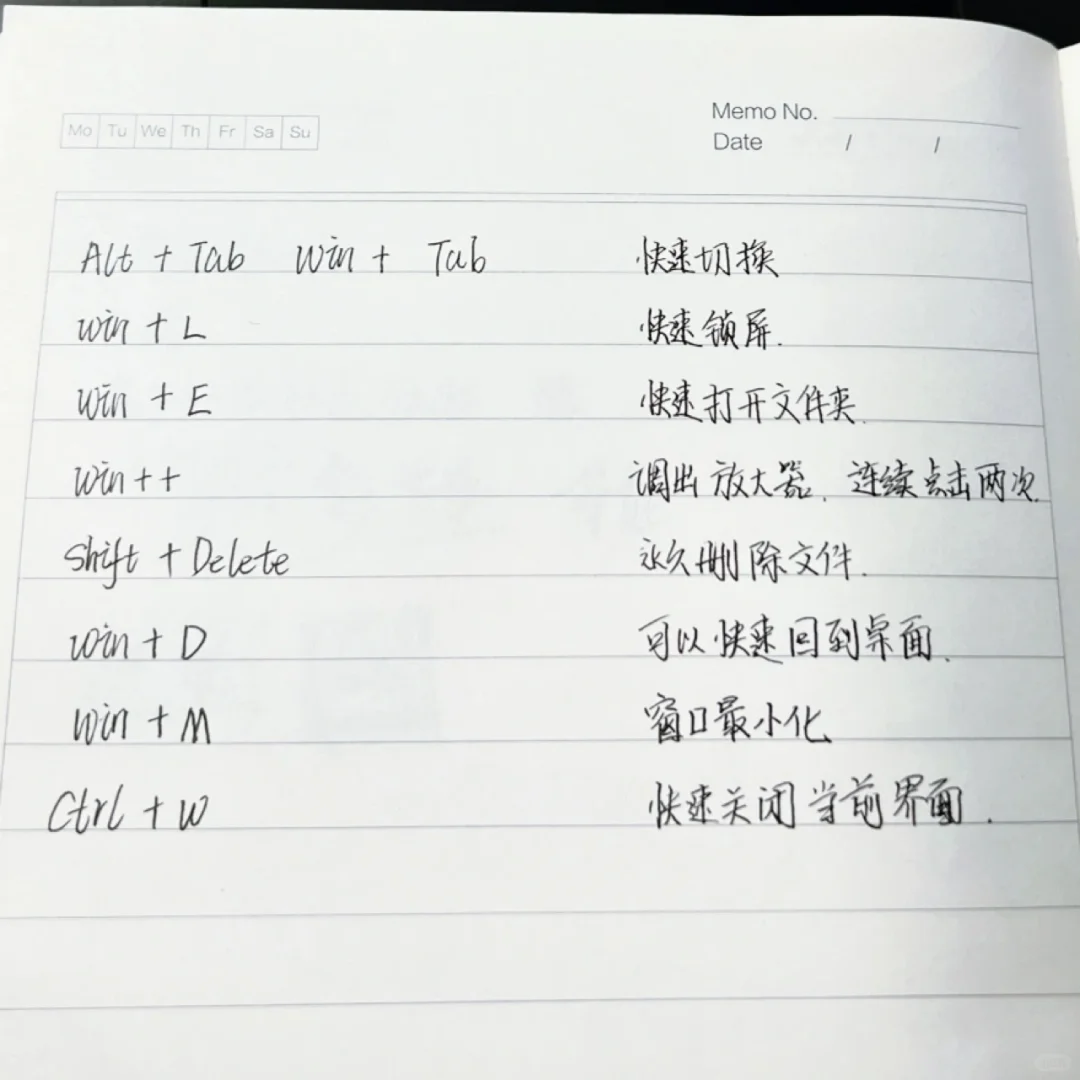 Mo Tu We Th Fr Sa Su
Memo No.
Date / /
Alt + Tab Win + Tab 快速切换
Win + L 快速锁屏.
Win + E 快速打开文件夹.
Win++ 调出放大器. 连续点击两次.
Shift + Delete 永久删除文件.
Win + D 可以快速回到桌面.
Win + M 窗口最小化
Ctrl + W 快速关闭当前界面.